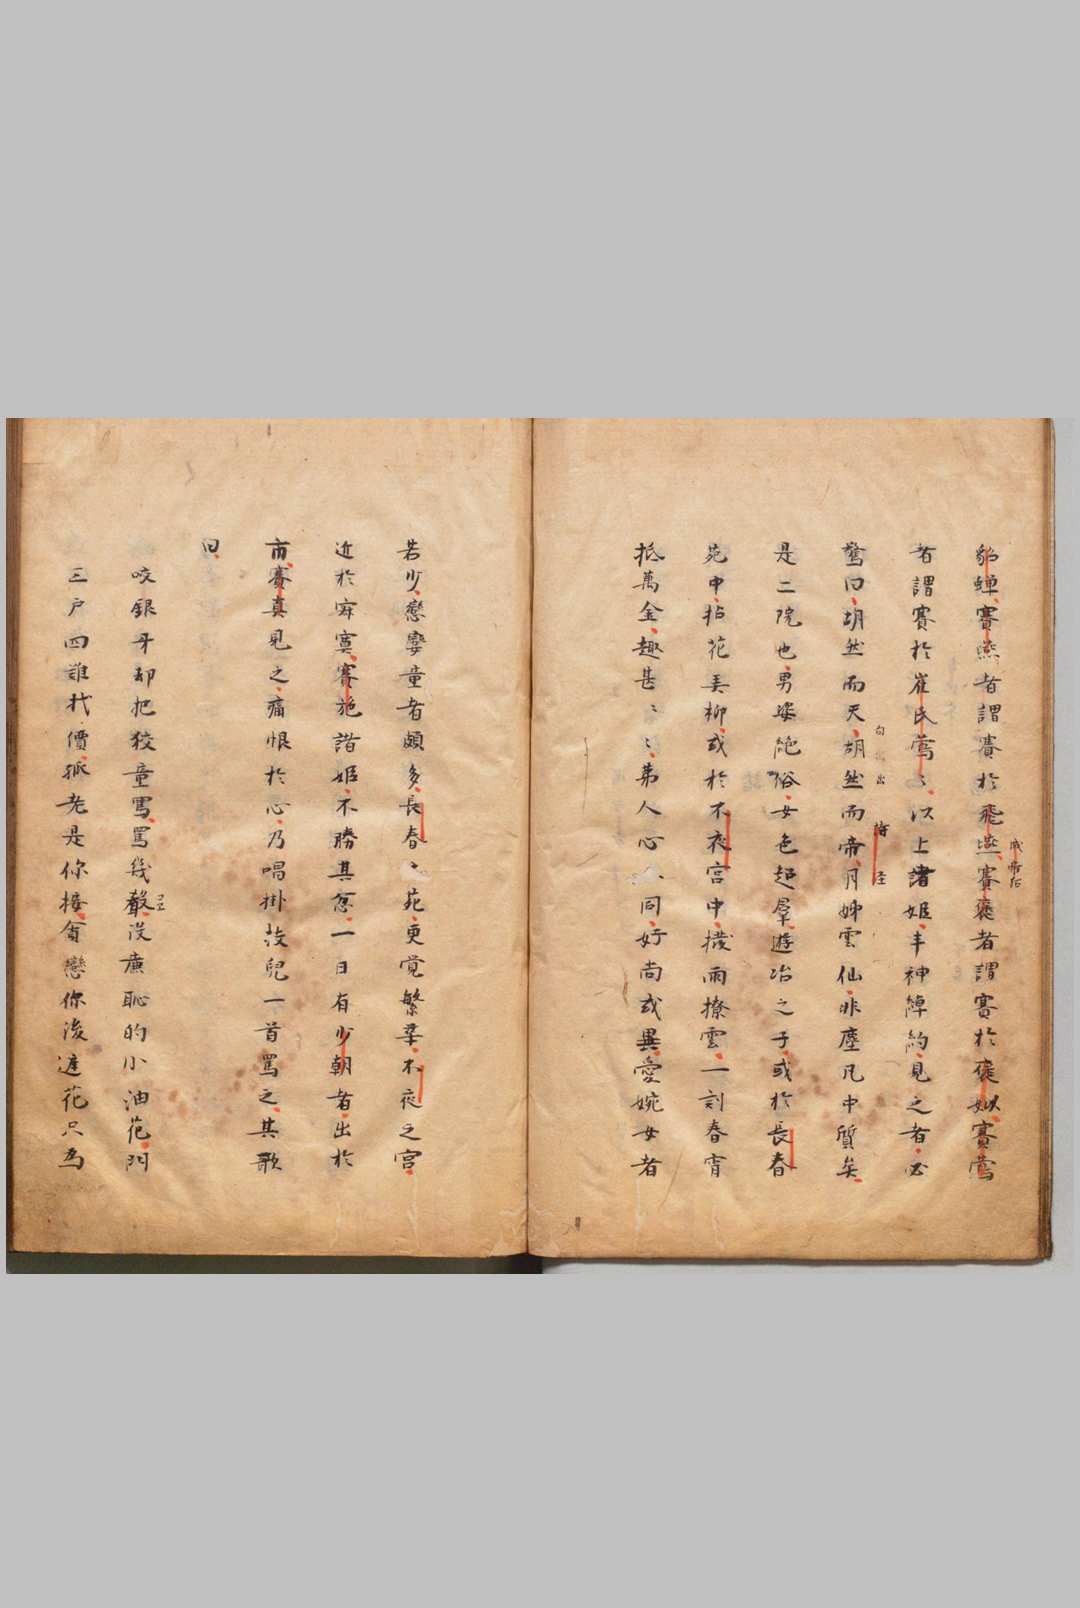 貂蟬賽燕者謂賽於飛燕賽褒者謂賽於褒姒賽鶯
成帝后
者謂賽於崔氏鶯〻以上諸姬丰神綽約見之者必
驚曰胡然而天胡然而帝月姊雲仙非塵凡中質矣
詩 出
是二院也男姿絶俗女色超羣遊冶之子或於長春
苑中拈花弄柳或於不夜宮中撥雨撩雲一刻春宵
抵萬金趣甚〻〻第人心 同好尚或異愛婉女者
若少戀孌童者頗多長春〻苑更覚繁華不夜之宮
近於寂寞賽施諸姬不勝其忿一日有少朝者出於
市賽真見之痛恨於心乃唱掛枝兒一首罵之其歌
曰
咬銀牙却把狡童罵罵幾聲没廉恥的小油花門
三户四誰找價孤老是你接貪戀你後遮花只為